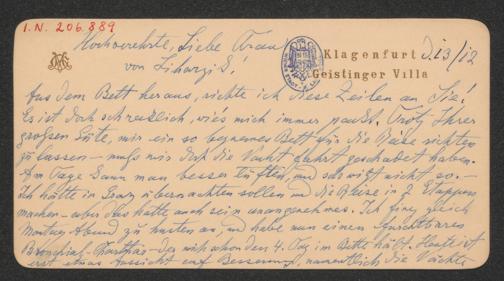 I.N. 206.889
Hochverehrte, Liebe Frau
von Liharzik!
Klagenfurt
Geistinger Villa
D. 13/12
Aus dem Bett heraus, richte ich diese Zeilen an Sie!
Es ist doch schrecklich, wie's mich immer packt. Trotz Ihrer
großen Güte, mir ein so bequemes Bett für die Reise richten
zu lassen – muß mir doch die Nachtfahrt geschadet haben.
Am Tage kann man besser lüften, und schwitzt nicht so. –
Ich hätte in Graz übernachten sollen und die Reise in 2 Etappen
machen – aber das hätte auch sein unangenehmes. Ich fing gleich
Montag Abend zu husten an, und habe nun einen furchtbaren
Bronchial-Katarrh – der mich schon den 4. Tag im Bette hält. Heute ist
erst etwas Aussicht auf Besserung, namentlich die Nächte